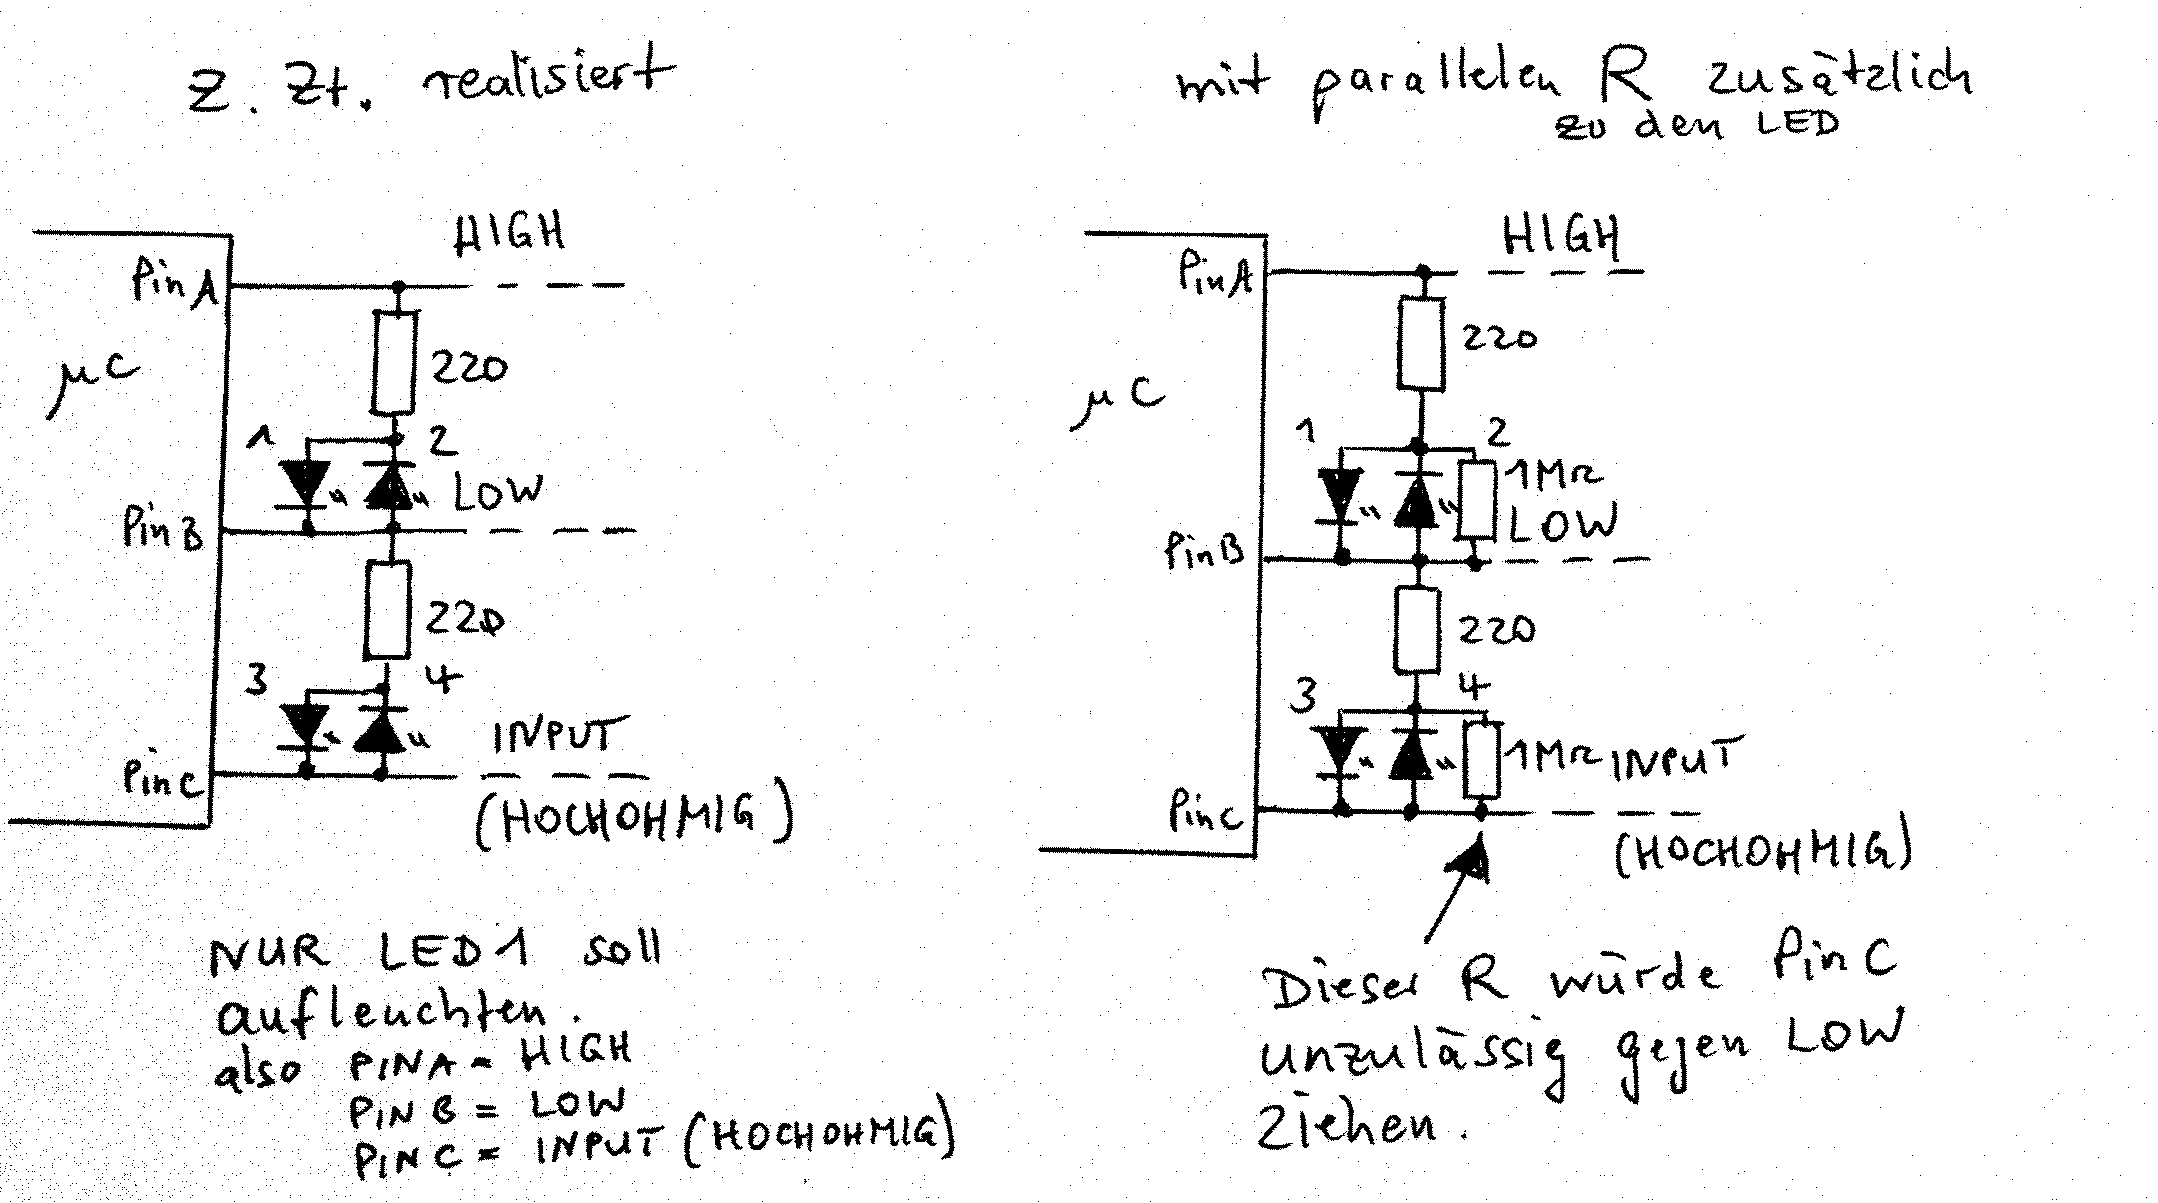 z. Zt. realisiert
HIGH
Pin A
µC
220
1
2
LOW
Pin B
220
3
4
INPUT
Pin C
(HOCHOHMIG)
NUR LED1 soll
aufleuchten.
also PINA = HIGH
PIN B = LOW
PIN C = INPUT (HOCHOHMIG)
mit parallelen R zusätzlich
zu den LED
HIGH
Pin A
220
µC
1
2
1MΩ
LOW
Pin B
220
3
4
1MΩ INPUT
Pin C
(HOCHOHMIG)
Dieser R würde Pin C
unzulässig gegen LOW
ziehen.